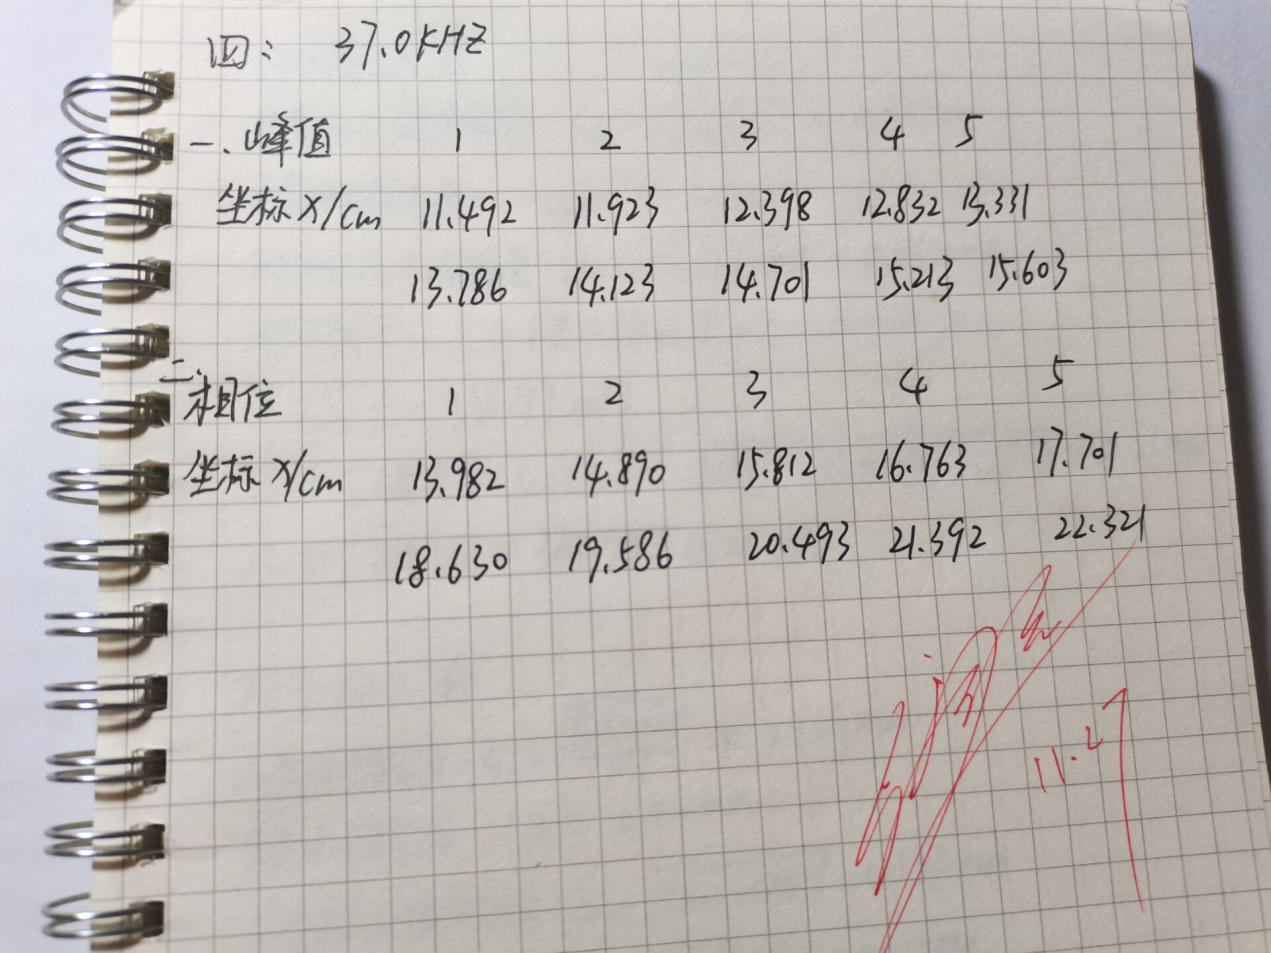 四: 37.0KHZ
一.峰值 1 2 3 4 5
坐标X/cm 11.492 11.923 12.398 12.832 13.331
13.786 14.123 14.701 15.213 15.603
二.相位 1 2 3 4 5
坐标X/cm 13.982 14.890 15.812 16.763 17.701
18.630 19.586 20.493 21.392 22.321
11.27